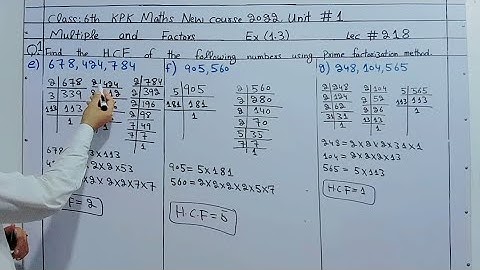 Class: 6th KPK Maths New course 2022. Unit #1
Multiple and Factors Ex (1.3) Lec #218
Q1 Find the H.C.F of the following numbers using Prime factorization method.
e) 678, 424, 784 f) 905, 560 g) 248, 104, 565
2 678 2 424 2 784
3 339 2 2 392
113 113 2 196
1 2 98
7 49
7 7
1
5 905
181 181
1
2 560
2 280
2 140
2 70
5 35
7 7
1
2 248
2 124
2 62
31 31
1
2 104
2 52
2 26
13 13
1
5 565
113 113
1
678 x 113
x 2 x 53
x 2 x 2 x 7 x 7
H.C.F = 2
905 = 5 x 181
560 = 2 x 2 x 2 x 2 x 5 x 7
H.C.F = 5
248 = 2 x 2 x 2 x 31 x 1
104 = 2 x 2 x 2 x 13
565 = 5 x 113
H.C.F = 1